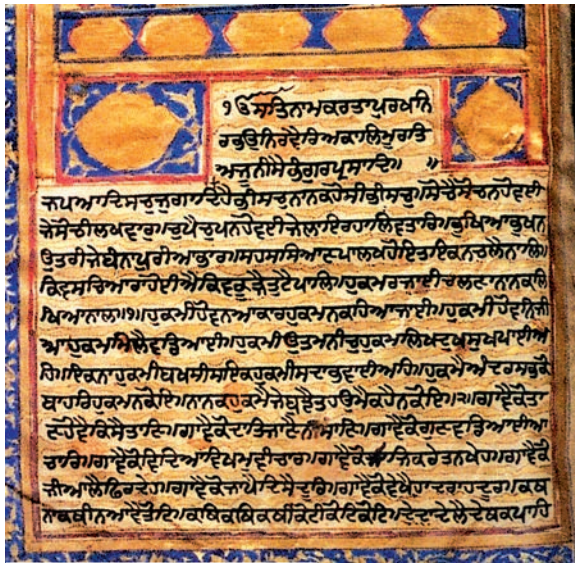 ੴਸਤਿਨਾਮਕਰਤਾਪੁਰਖਨਿ
ਰਭਉਨਿਰਵੈਰਿਅਕਾਲਿਮੂਰਤਿ
ਅਜੂਨੀਸੈਭੰਗੁਰਪ੍ਰਸਾਦਿ॥ ॥
ਜਪਆਦਿਸਚੁਜੁਗਾਦਿਹੈਭੀਸਚੁਨਾਨਕਹੋਸੀਭੀਸਚੁ॥ਸੋਚੈਸੋਚਨਹੋਵਈ
ਜੇਸੋਚੀਲਖਵਾਰ॥ਚੁਪੈਚੁਪਨਹੋਵਈਜੇਲਾਇਰਹਾਲਿਵਤਾਰ॥ਭੁਖਿਆਭੁਖਨ
ਉਤਰੀਜੇਬੰਨਪੁਰੀਆਭਾਰ॥ਸਹਸਸਿਆਣਪਾਲਖਹੋਇਤਇਕਨਚਲੈਨਾਲਿ॥
ਕਿਵਸਚਿਆਰਾਹੋਈਐਕਿਵਕੂੜੈਤੁਟੈਪਾਲਿ॥ਹੁਕਮਰਜਾਈਚਲਣਾਨਾਨਕਲਿ
ਖਿਆਨਾਲ॥੧॥ਹੁਕਮੀਹੋਵਨਆਕਾਰਹੁਕਮਨਕਹਿਆਜਾਈ॥ਹੁਕਮੀਹੋਵਨਿਜੀ
ਆਹੁਕਮਮਿਲੈਵਡਿਆਈ॥ਹੁਕਮੀਉਤਮਨੀਚੁਹੁਕਮਲਿਖਦੁਖਸੁਖਪਾਈਅ
ਹਿ॥ਇਕਨਾਹੁਕਮੀਬਖਸੀਸਇਕਹੁਕਮੀਸਦਾਭਵਾਈਅਹਿ॥ਹੁਕਮੈਅੰਦਰਸਭਕੋ
ਬਾਹਰਿਹੁਕਮਨਕੋਇ॥ਨਾਨਕਹੁਕਮੈਜੇਬੁਝੈਤਹਉਮੈਕਹੈਨਕੋਇ॥੨॥ਗਾਵੈਕੋਤਾ
ਣਹੋਵੈਕਿਸੈਤਾਣਿ॥ਗਾਵੈਕੋਦਾਤਿਜਾਣੈਨੀਸਾਣਿ॥ਗਾਵੈਕੋਗੁਣਵਡਿਆਈਆ
ਚਾਰਿ॥ਗਾਵੈਕੋਵਿਦਿਆਵਿਖਮਵੀਚਾਰ॥ਗਾਵੈਕੋਸਾਜਿਕਰੇਤਨਖੇਹ॥ਗਾਵੈਕੋ
ਜੀਆਲੈਫਿਰਦੇਹ॥ਗਾਵੈਕੋਜਾਪੈਦਿਸੈਦੂਰਿ॥ਗਾਵੈਕੋਵੇਖੈਹਾਦਰਾਹਦੂਰ॥ਕਥ
ਨਾਕਥੀਨਆਵੈਤੋਟਿ॥ਕਥਿਕਥਿਕਥੀਕੋਟੀਕੋਟਿਕੋਟਿ॥ਦੇਦਾਦੇਲੈਦੇਥਕਪਾਹਿ